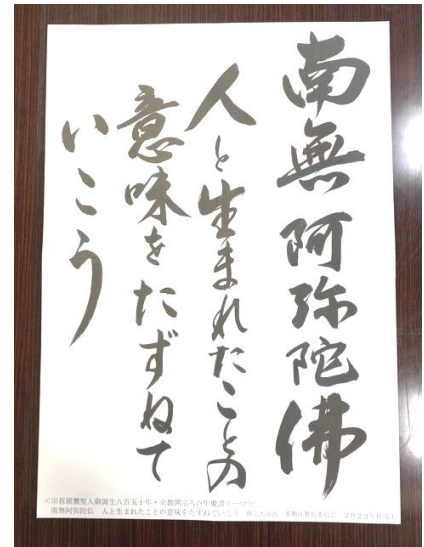 南無阿弥陀佛
人と生まれたことの
意味をたずねて
いこう
<宗祖親鸞聖人御誕生八百五十年・立教開宗八百年慶讃テーマ>
南無阿弥陀仏 人と生まれたことの意味をたずねていこう 真宗大谷派